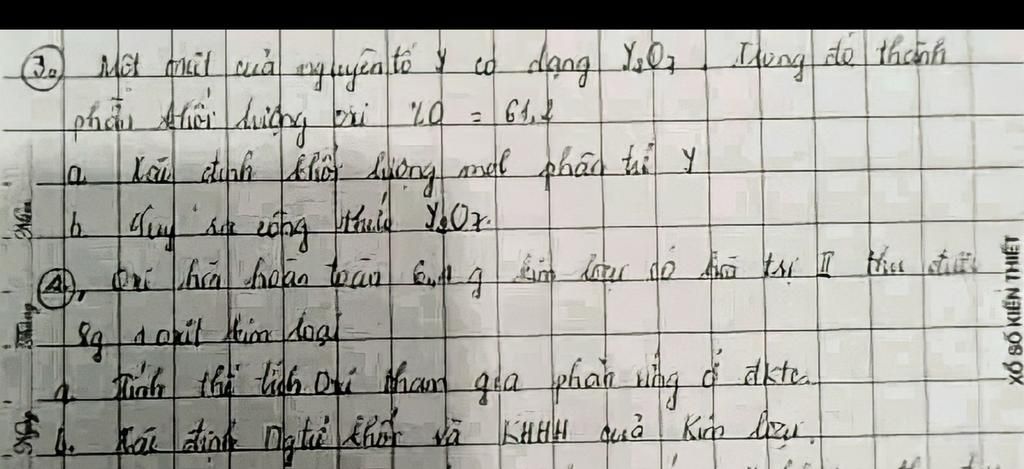 3. Một oxit của nguyên tố Y có dạng Y2O7. Trong đó thành
phần khối lượng oxi %O = 61,2
a Xác định khối lượng mol phân tử Y
b Suy ra công thức Y2O7.
4, Oxi hóa hoàn toàn 6,4 g kim loại có hóa trị II thu được
8g 1 oxit kim loại
a. Tính thể tích oxi tham gia phản ứng ở đktc
b. Xác định ngtử khối và KHHH quả Kim loại.
XỔ SỐ KIẾN THIẾT
Ngày